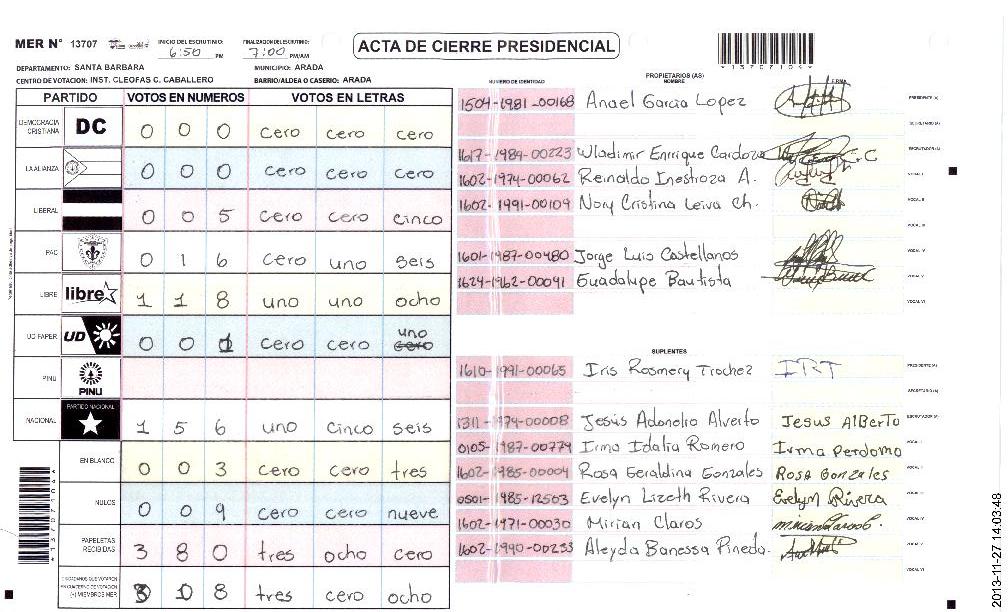 MER N° 13707 INICIO DEL ESCRUTINIO: 6:50 PM FINALIZACION DEL ESCRUTINIO: 7:00 PM/AM
ACTA DE CIERRE PRESIDENCIAL
*13707104*
DEPARTAMENTO: SANTA BARBARA MUNICIPIO: ARADA
CENTRO DE VOTACION: INST. CLEOFAS C. CABALLERO BARRIO/ALDEA O CASERIO: ARADA
PARTIDO VOTOS EN NUMEROS VOTOS EN LETRAS
DEMOCRACIA CRISTIANA DC 0 0 0 cero cero cero
LA ALIANZA 0 0 0 cero cero cero
LIBERAL 0 0 5 cero cero cinco
PAC 0 1 6 cero uno seis
LIBRE libre 1 1 8 uno uno ocho
UD FAPER UD 0 0 1 cero cero uno cero
PINU PINU
NACIONAL PARTIDO NACIONAL 1 5 6 uno cinco seis
EN BLANCO 0 0 3 cero cero tres
NULOS 0 0 9 cero cero nueve
PAPELETAS RECIBIDAS 3 8 0 tres ocho cero
CIUDADANOS QUE VOTARON EN CUADERNO DE VOTACION (+) MIEMBROS MER 3 0 8 tres cero ocho
*13707104*
PROPIETARIOS (AS)
NUMERO DE IDENTIDAD NOMBRE FIRMA
1504-1981-00168 Anael Garcia Lopez PRESIDENTE (A)
SECRETARIO (A)
1617-1989-00223 Wladimir Enrrique Cardoza ESCRUTADOR (A)
1602-1974-00062 Reinaldo Inestroza A. VOCAL I
1602-1991-00109 Nory Cristina Leiva Ch. VOCAL II
VOCAL III
1601-1987-00480 Jorge Luis Castellanos VOCAL IV
1624-1962-00041 Guadalupe Bautista VOCAL V
VOCAL VI
SUPLENTES
1610-1991-00065 Iris Rosmery Trochez IRT PRESIDENTE (A)
SECRETARIO (A)
1311-1974-00008 Jesús Adonelio Alverto Jesus AlBerto ESCRUTADOR (A)
0105-1987-00779 Irma Idalia Romero Irma Perdomo VOCAL I
1602-1985-00004 Rosa Geraldina Gonzales Rosa Gonzales VOCAL II
0501-1985-12503 Evelyn Lizeth Rivera Evelyn Rivera VOCAL III
1602-1971-00030 Mirian Claros VOCAL IV
1602-1990-00253 Aleyda Banessa Pineda. VOCAL V
VOCAL VI
2013-11-27 14:03:48